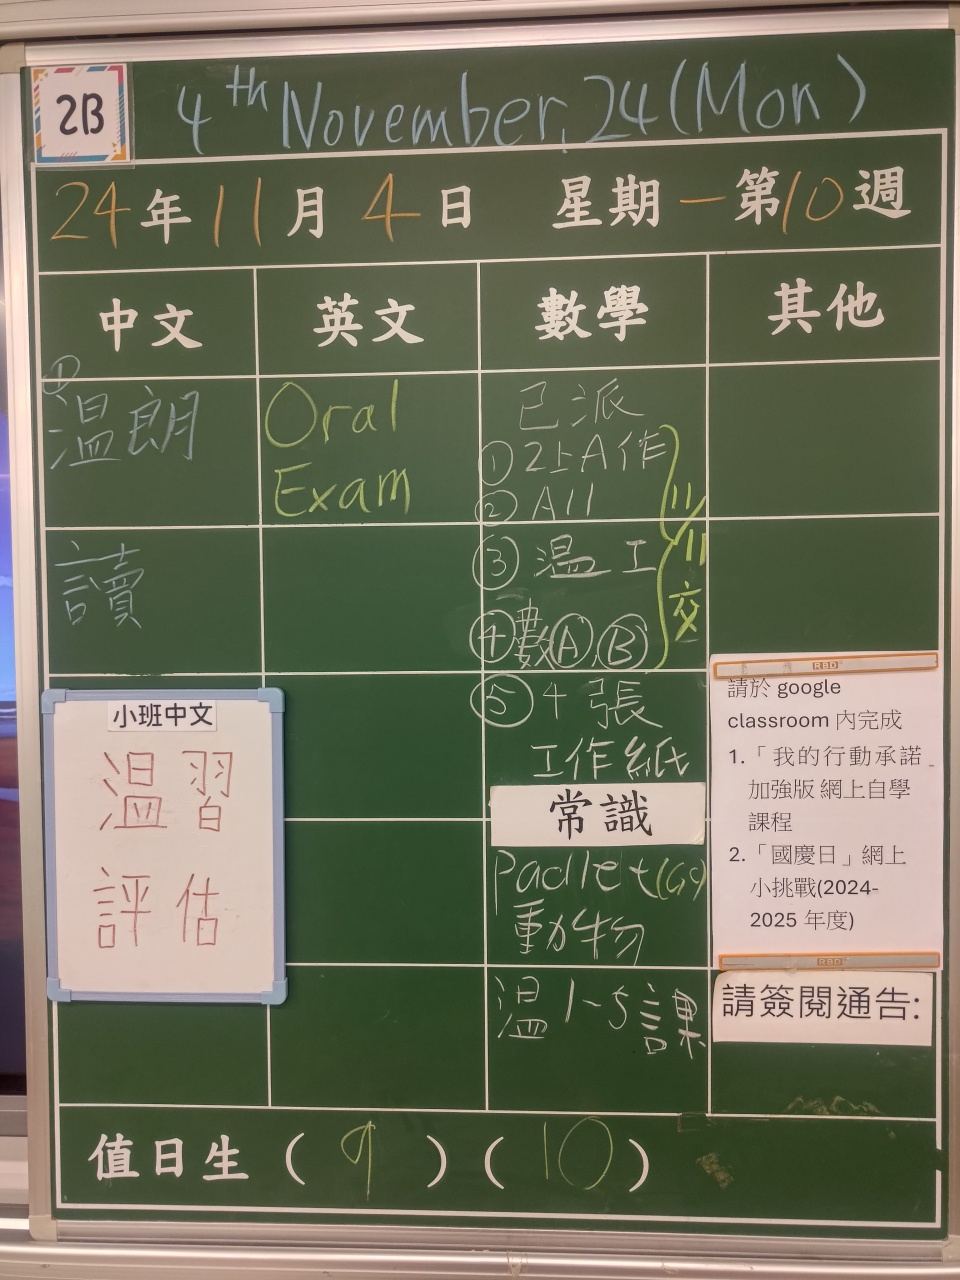 2B
4th November, 24 (Mon)
24年 11月 4日 星期一 第10週
中文
英文
數學
其他
①
溫朗
讀
小班中文
溫習
評估
Oral
Exam
已派
① 2上A作
② A11
③ 溫工
④ 數Ⓐ,Ⓑ
11/11
交
⑤ 4張
工作紙
常識
Padlet(G9)
動物
溫1-5課
RBD
請於 google
classroom 內完成
1.「我的行動承諾
加強版 網上自學
課程
2.「國慶日」網上
小挑戰(2024-
2025 年度)
RBD
請簽閱通告:
值日生 ( 9 ) ( 10 )